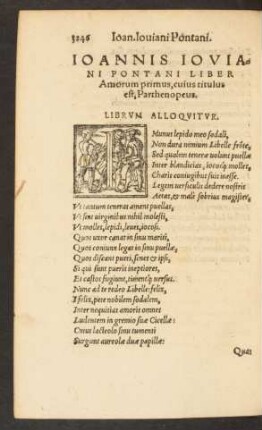 3246 Ioan. Iouiani Pontani.
IOANNIS IOVIA-
NI PONTANI LIBER
Amorum primus, cuius titulus
est, Parthenopeus.
LIBRVM ALLOQVITVR.
Munus lepido meo sodali,
Non dura nimium Libelle fronte,
Sed qualem teneræ volunt puellæ
Inter blanditias, iocosq́; molles,
Charis coniugibus suis inesse.
Legem versiculis dedere nostris
Aetas, et male sobrius magister,
Vt tantum teneras ament puellas,
Vt sint virginibus nihil molesti,
Vt molles, lepidi, leues, iocosi.
Quos vxor canat in sinu mariti,
Quos coniunx legat in sinu puellæ,
Quos discant pueri, senex et ipsi,
Si qui sunt pueris ineptiores,
Et castos fugiant, iuuentq́;
Nunc ad te redeo Libelle felix,
I felix, pete nobilem sodalem,
Inter nequitias amoris omnes
Ludentem in gremio suæ Cicellæ:
Cuius lacteolo sinu tumenti
Surgunt aureolæ duæ papillæ:
Quas